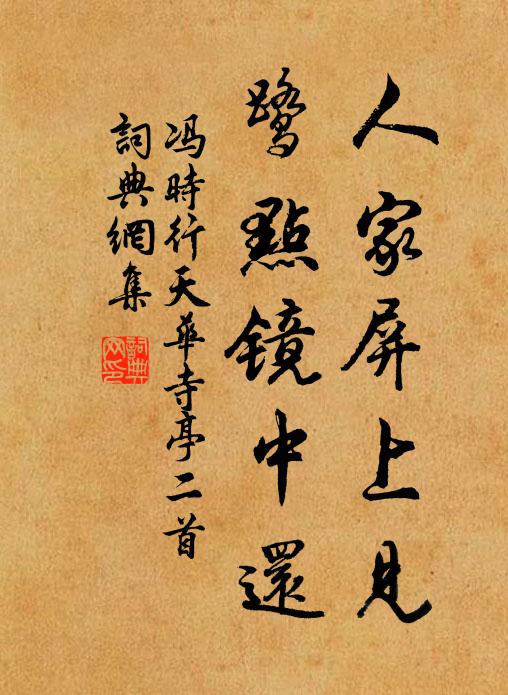 人家屏上見
鷺點鏡中還
馮時行天華寺亭二首
詞典網集
詞典
网印